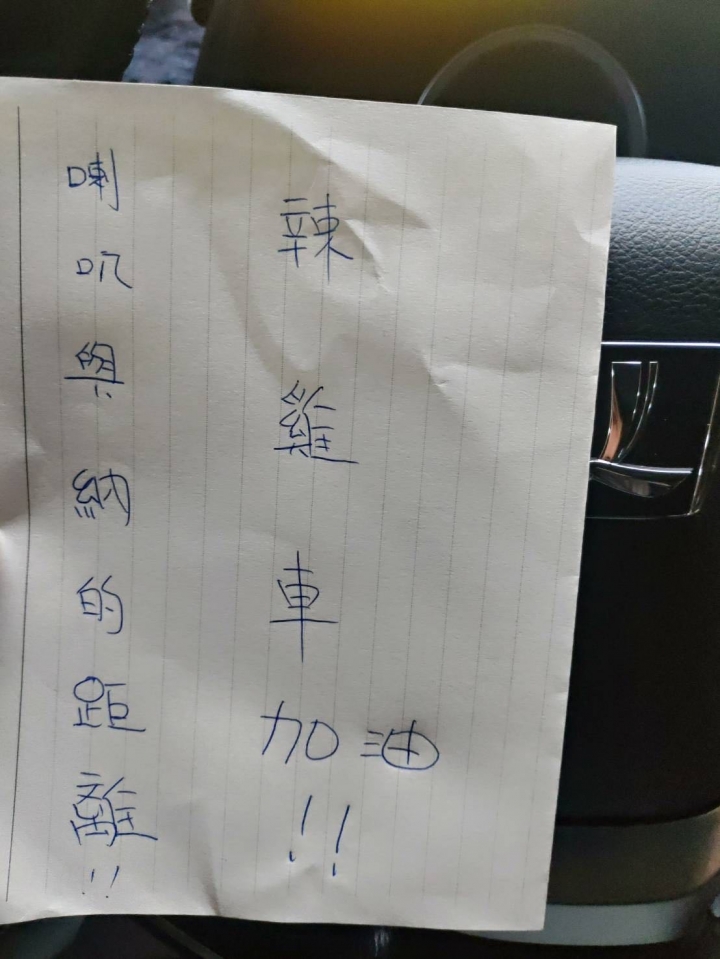 辣雞車加油!!
喇叭與納的距離!!